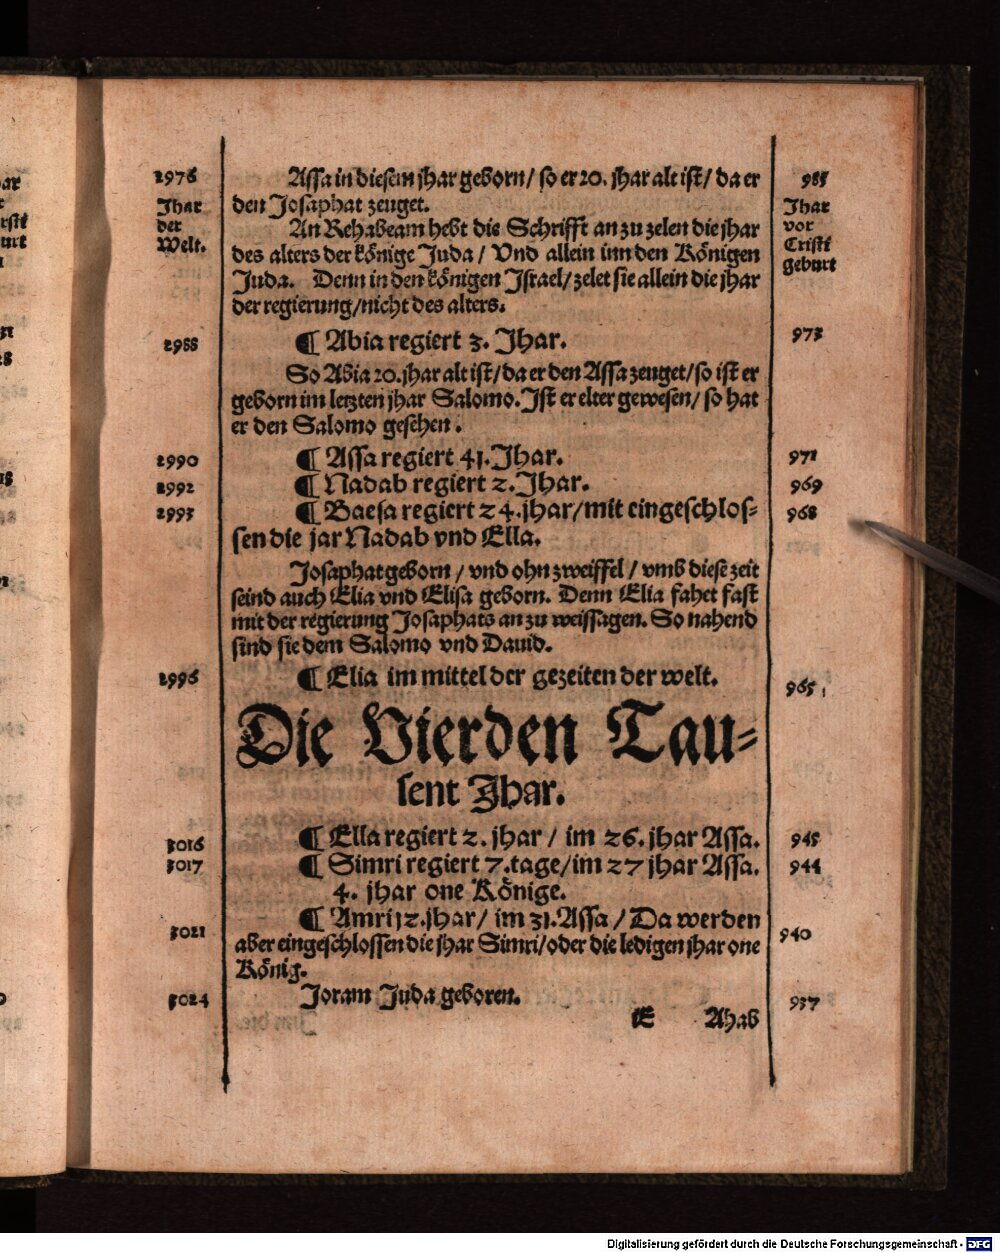 2976 Assa in diesem jhar geborn / so er 20. jhar alt ist / da er 985
Jhar den Josaphat zeuget. Jhar
der An Rehabeam hebt die Schrifft an zu zelen die jhar vor
Welt. des alters der könige Juda / Vnd allein inn den Königen Cristi
Juda. Denn in den königen Israel / zelet sie allein die jhar geburt
der regierung / nicht des alters.
2988 ¶ Abia regiert 3. Jhar. 973
So Abia 20. jhar alt ist / da er den Assa zeuget / so ist er
geborn im letzten jhar Salomo. Ist er elter gewesen / so hat
er den Salomo gesehen.
2990 ¶ Assa regiert 41. Jhar. 971
2992 ¶ Nadab regiert 2. Jhar. 969
2993 ¶ Baesa regiert 24. jhar / mit eingeschlos= 968
sen die jar Nadab vnd Ella.
Josaphat geborn / vnd ohn zweiffel / vmb diese zeit
seind auch Elia vnd Elisa geborn. Denn Elia fahet fast
mit der regierung Josaphats an zu weissagen. So nahend
sind sie dem Salomo vnd Dauid.
2996 ¶ Elia im mittel der gezeiten der welt. 965
Die Vierden Tau=
sent Jhar.
3016 ¶ Ella regiert 2. jhar / im 26. jhar Assa. 945
3017 ¶ Simri regiert 7. tage / im 27 jhar Assa. 944
4. jhar one Könige.
3021 ¶ Amri 12. jhar / im 31. Assa / Da werden 940
aber eingeschlossen die jhar Simri / oder die ledigen jhar one
König.
3024 Joram Juda geboren. 937
E Ahab
Digitalisierung gefördert durch die Deutsche Forschungsgemeinschaft - DFG